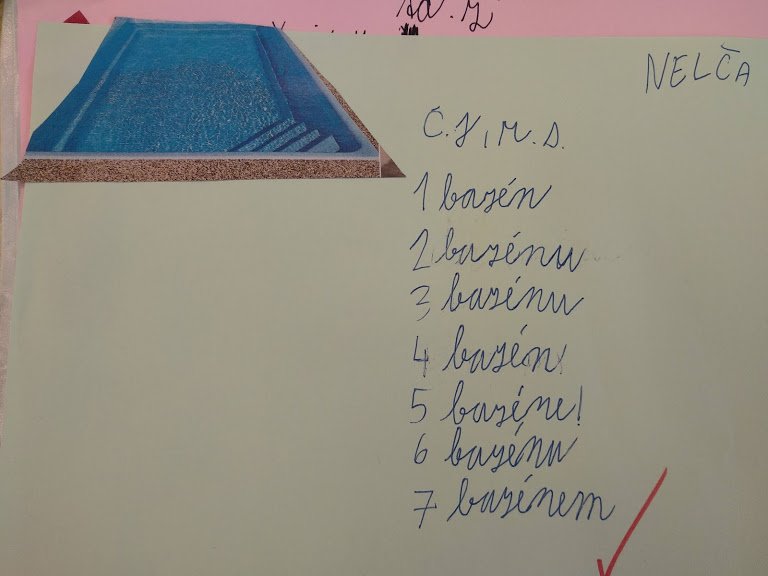 NELČA
Č. J, M. D.
1 bazén
2 bazénu
3 bazénu
4 bazén
5 bazéne!
6 bazénu
7 bazénem